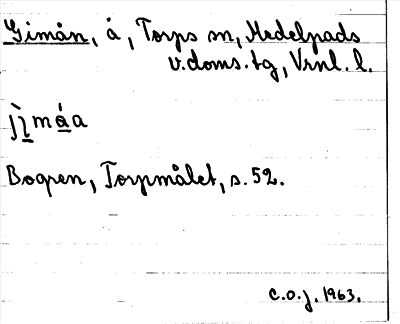 Gimån, å, Torps sn, Medelpads
v.doms.tg, Vrnl. l.
jì̱má̱a
Bogren, Torpmålet, s. 52.
C.O.J. 1963.